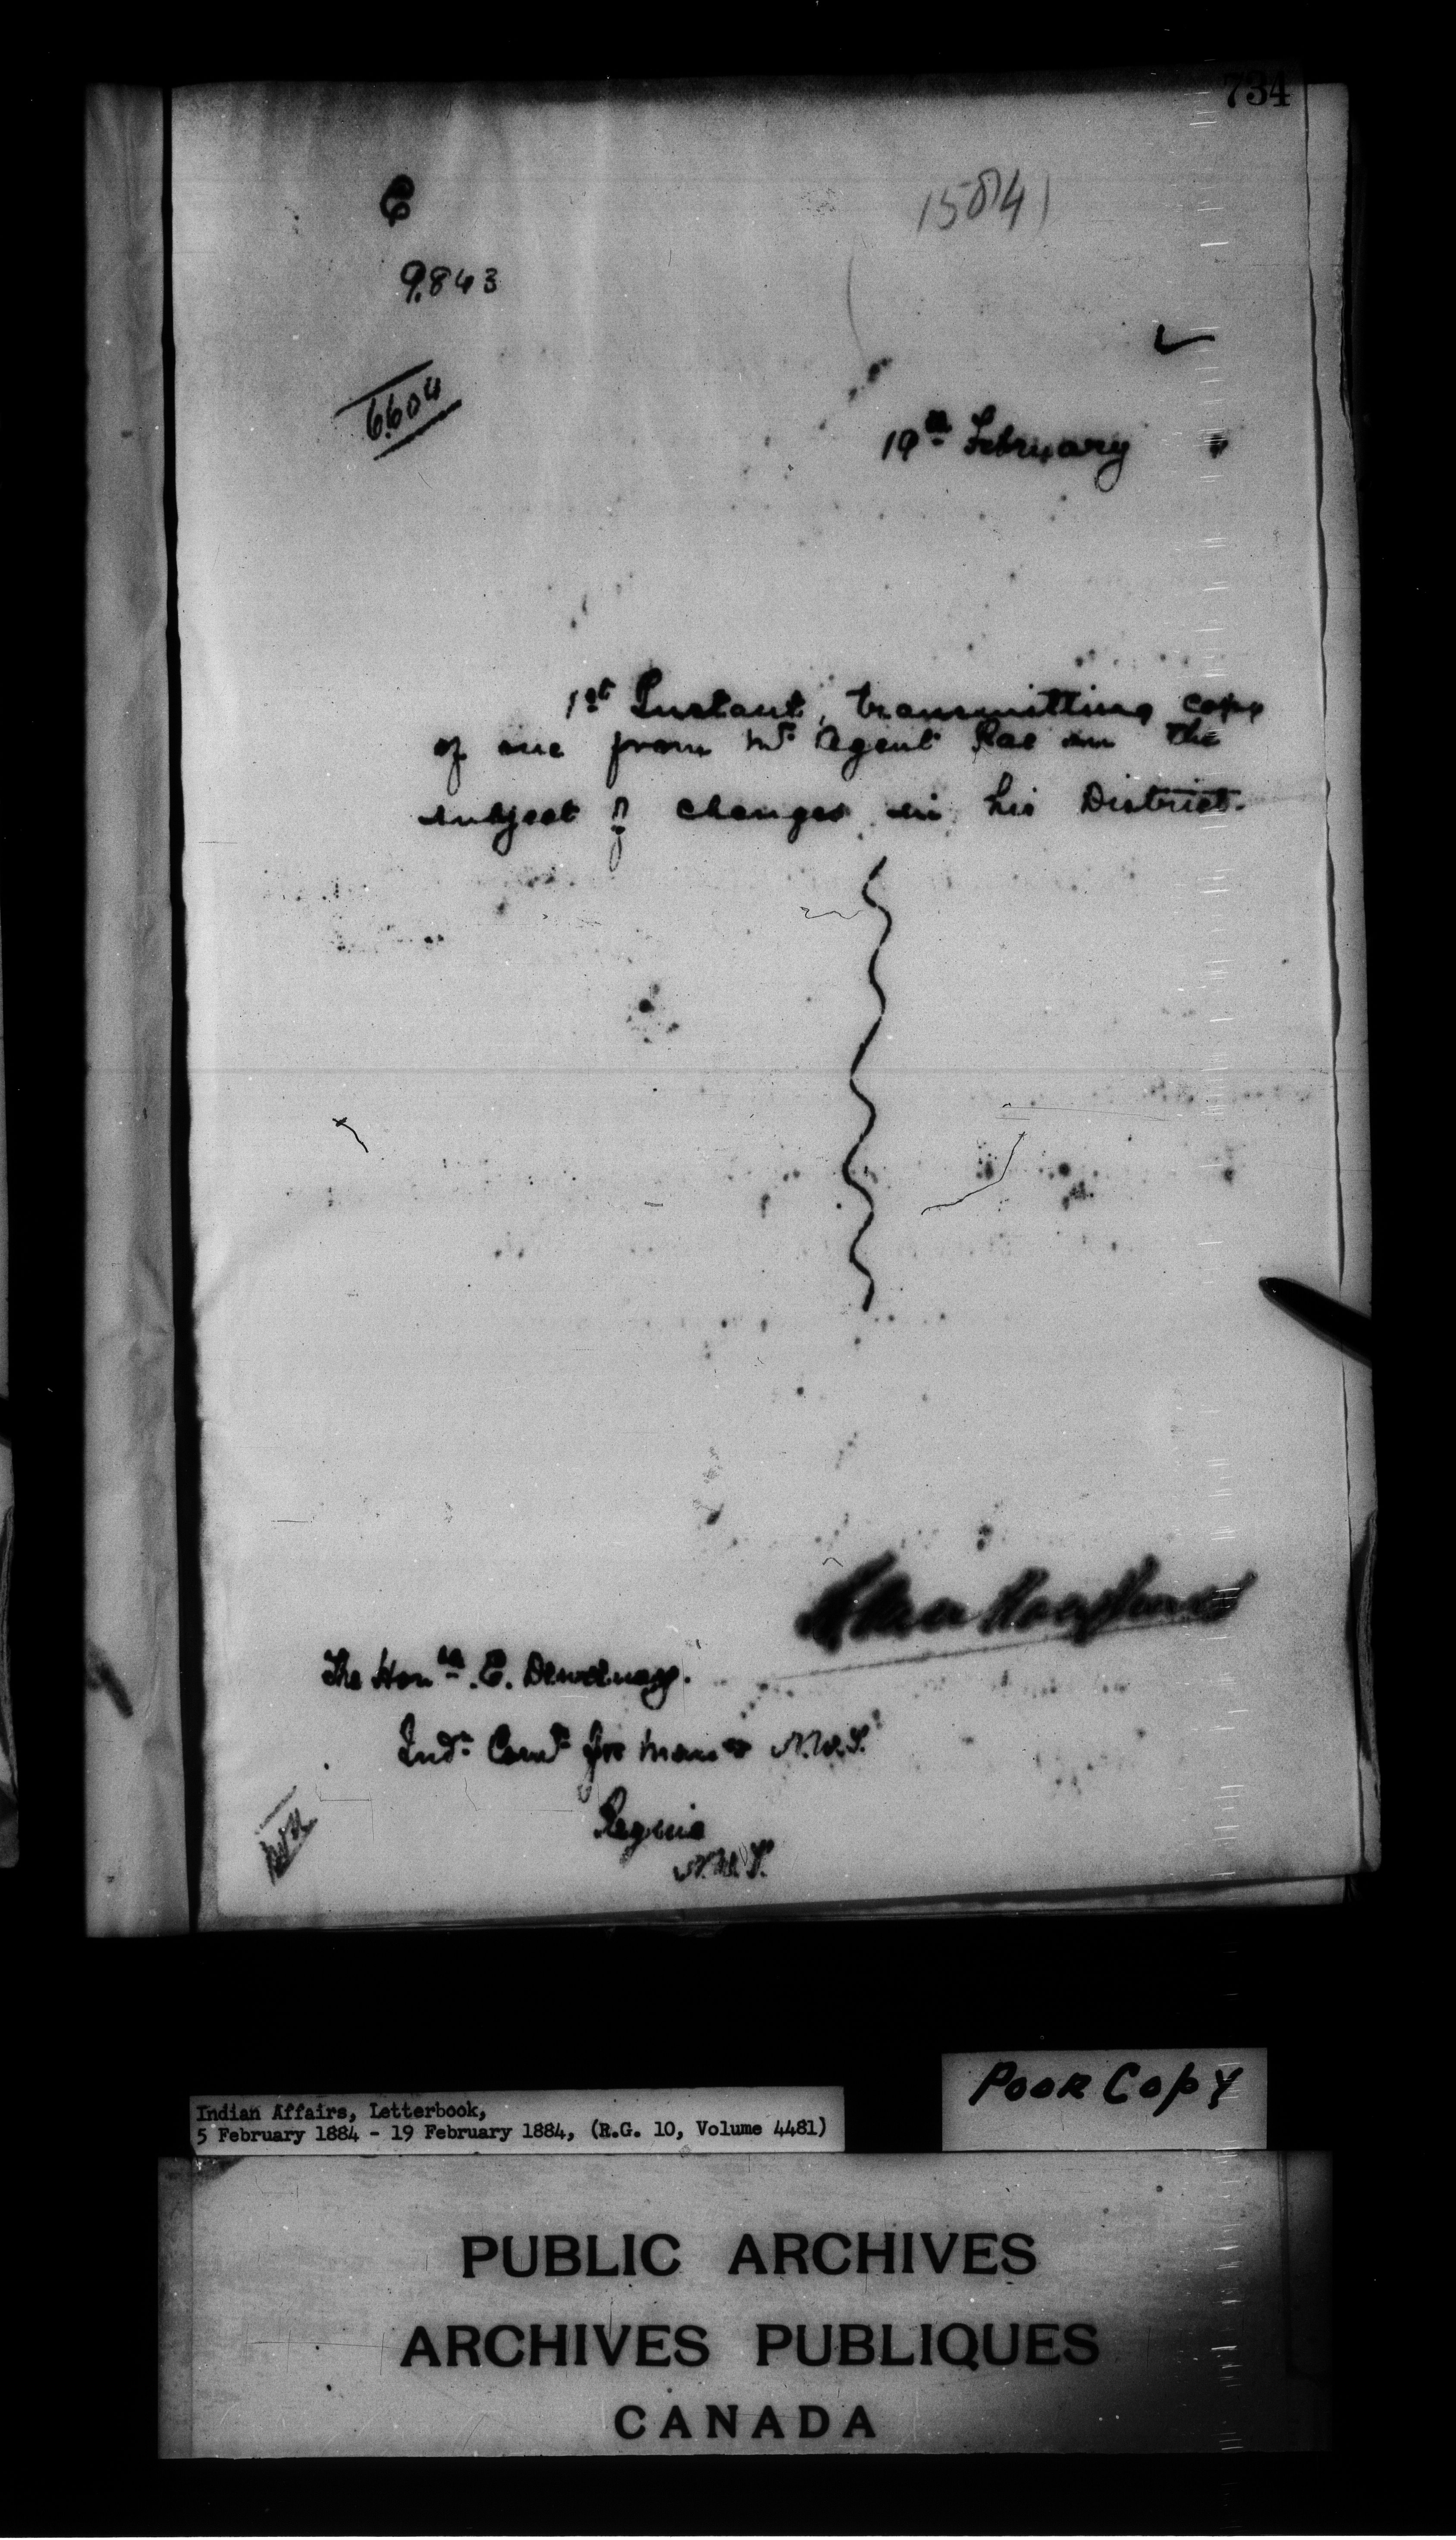 734
C
15841
9.843
6604
19th February
1st Instant, transmitting copy
of one from Mr Agent Rae on the
subject of changes in his District.
The Honble. E. Dewdney.
Indn Comr for Man & N.W.T.
Regina
N.W.T.
Poor Copy
Indian Affairs, Letterbook,
5 February 1884 - 19 February 1884, (R.G. 10, Volume 4481)
PUBLIC ARCHIVES
ARCHIVES PUBLIQUES
CANADA